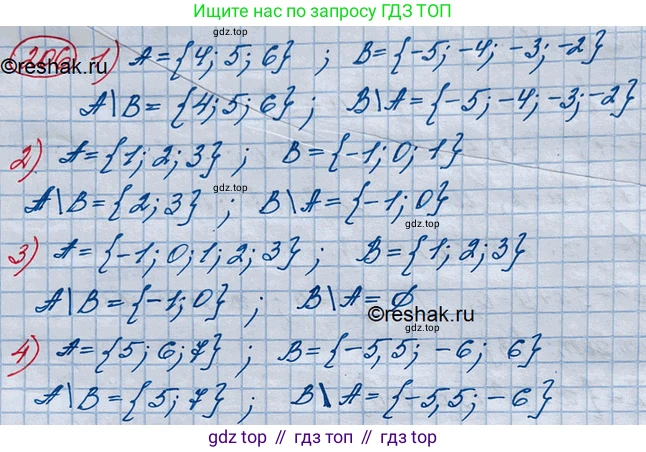 Ищите нас по запросу ГДЗ ТОП
206 1) A={4; 5; 6} ; B={-5; -4; -3; -2}
©reshak.ru
гдз top
A\B= {4; 5; 6} ; B\A={-5; -4; -3; -2}
2) A={1; 2; 3} ; B={-1; 0; 1}
гдз.top
A\B={2; 3} ; B\A={-1; 0}
гдз.top
3) A={-1; 0; 1; 2; 3} ; B={1; 2; 3}
A\B={-1; 0} ; B\A=∅
©reshak.ru
гдз.top
4) A={5; 6; 7} ; B={-5,5; -6; 6}
A\B={5; 7} ; B\A={-5,5; -6}
гдз.top
гдз top // гдз топ // gdz top